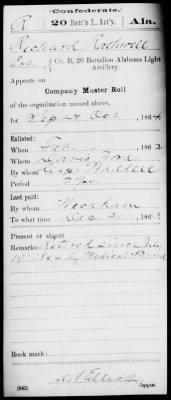 (Confederate.)
R 20 Batt'n L. Art'y. Ala.
Richard Rockwell
Co. B, 20 Battalion Alabama Light
Artillery.
Appears on
Company Muster Roll
of the organization named above,
for Sept & Oct, 1864
Enlisted:
When
Where
By whom Capt Waddell
Period
Last paid:
By whom
To what time Dec. 31, 1863
Present or absent
Remarks: since July
19" 1864 by Medical Board
Book mark:
(642) Copyist.